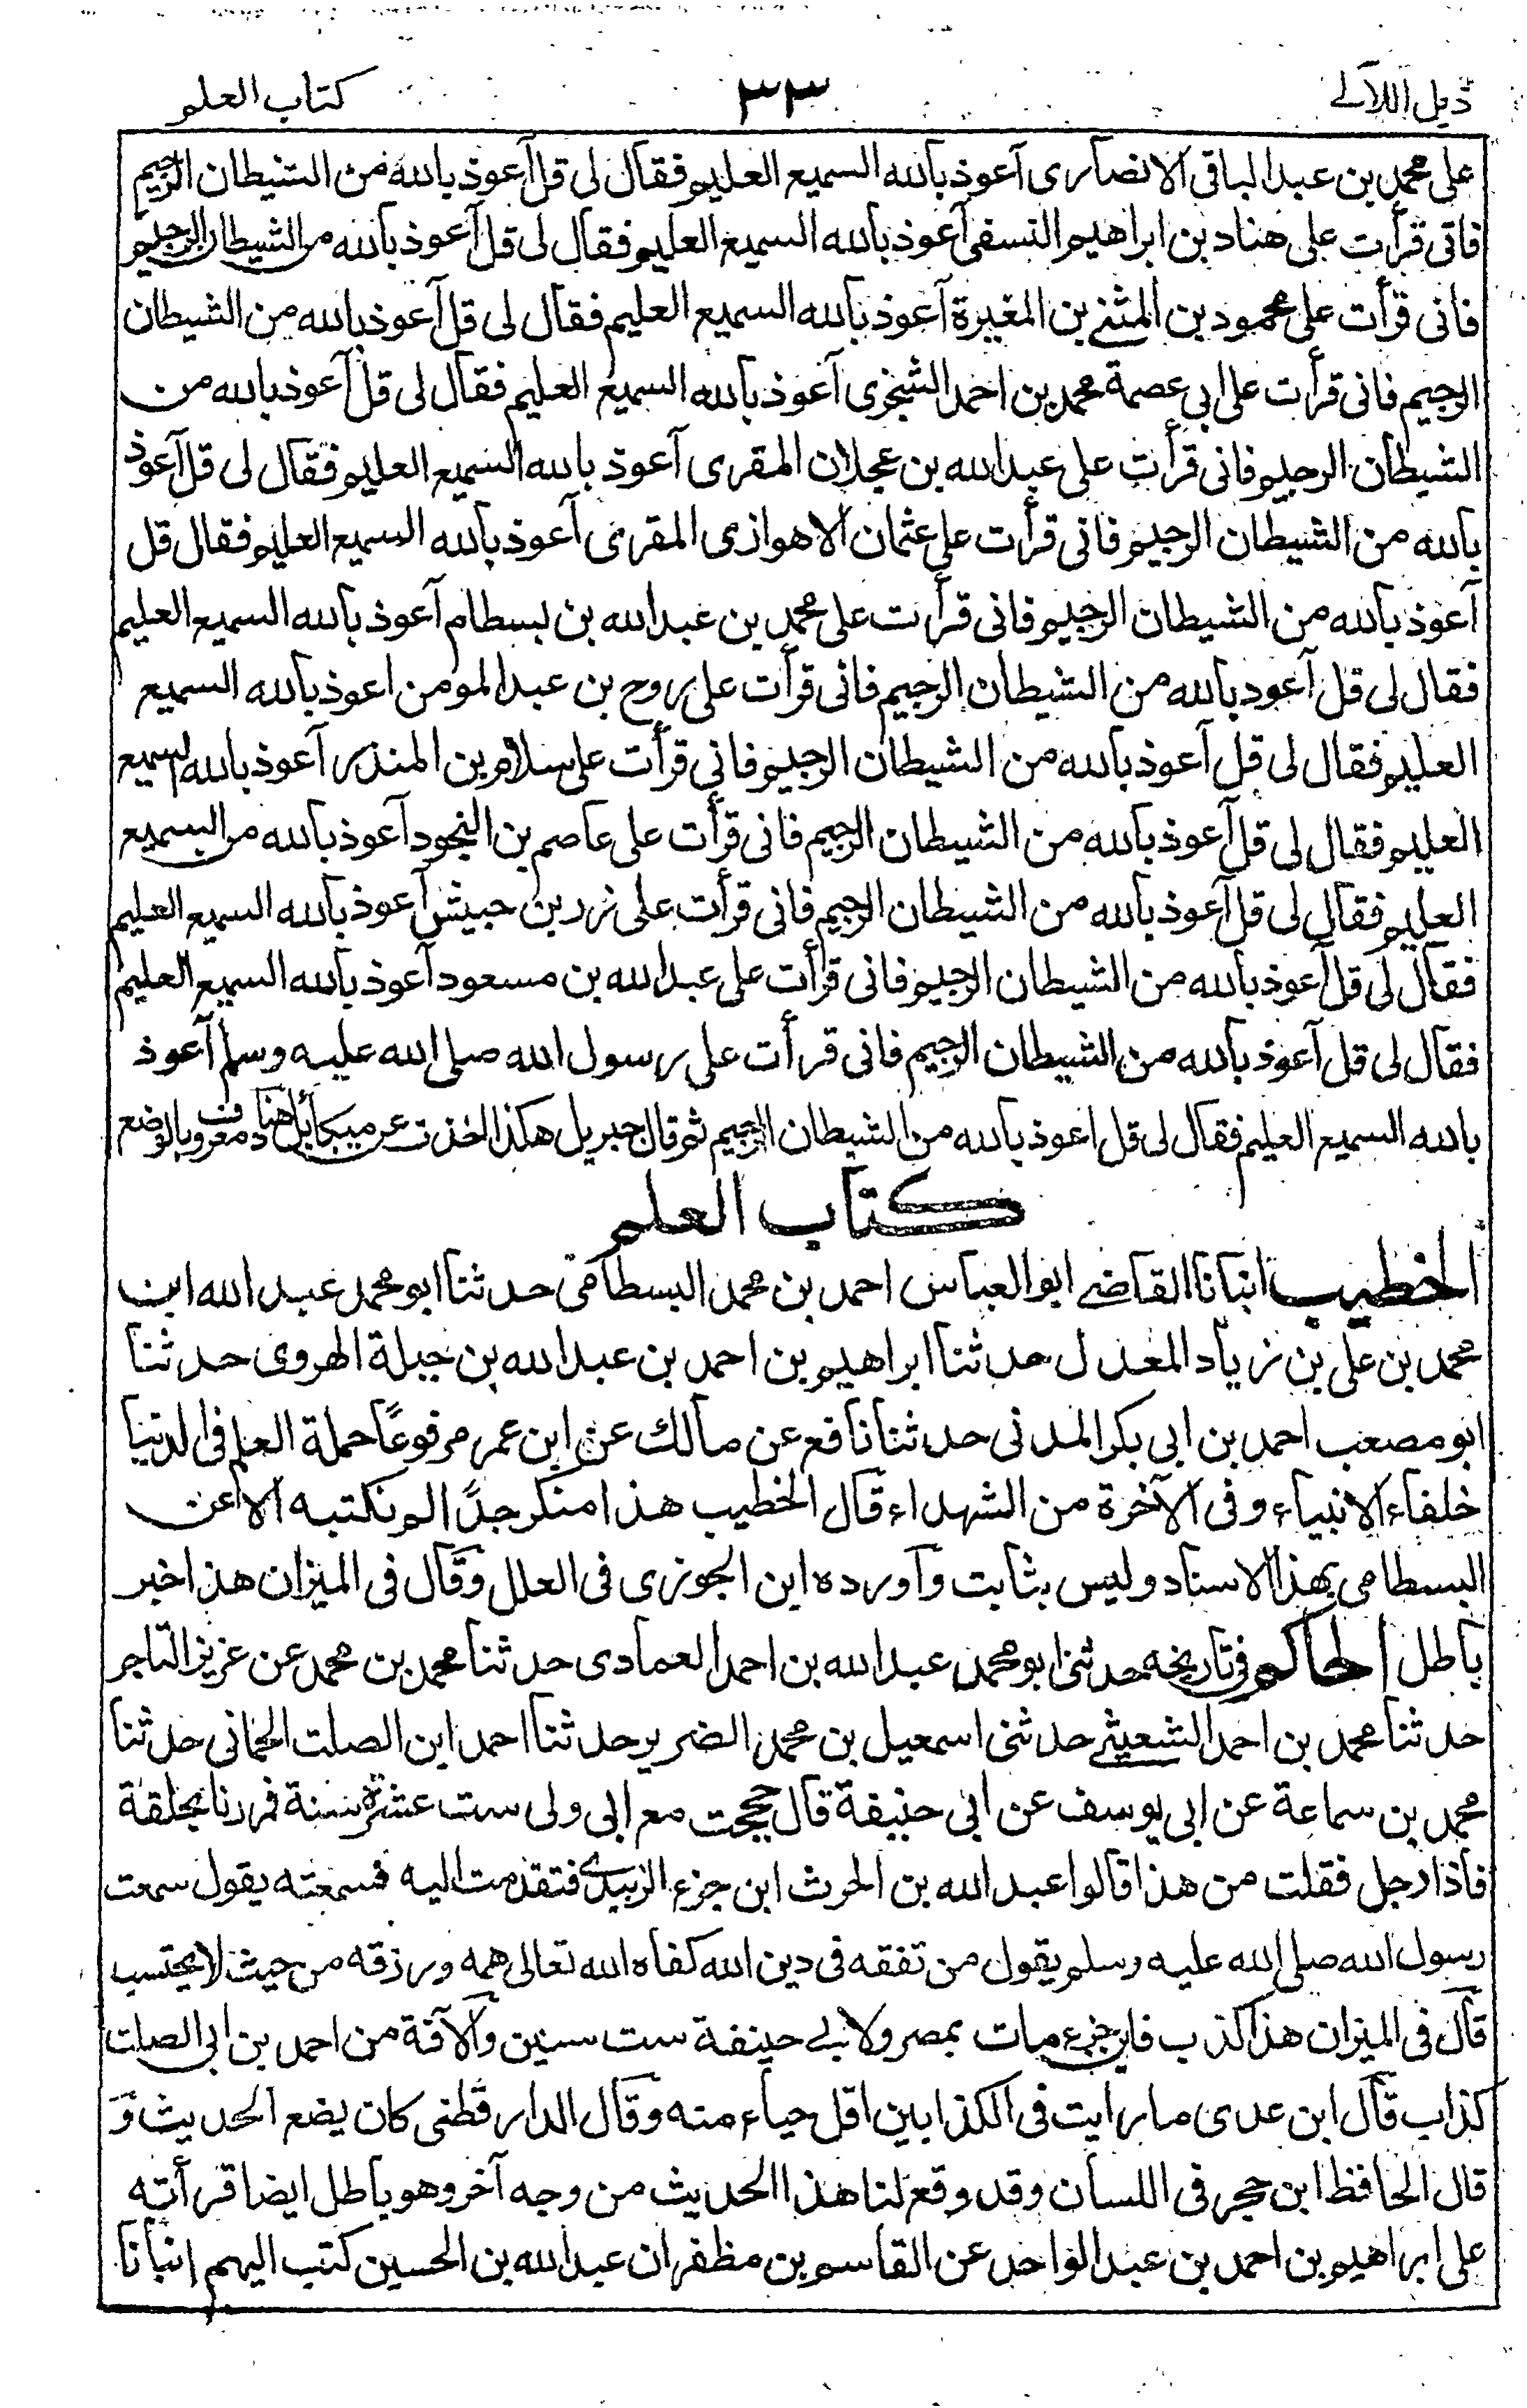 ذيل اللآلے
٣٣
كتاب العلم
على محمد بن عبد الباقى الانصارى آعوذ بالله السميع العليم فقال لى قل آعوذ بالله من الشيطان الرجيم
فانى قرأت على هناد بن ابراهيم النسفى آعوذ بالله السميع العليم فقال لى قل آعوذ بالله من الشيطان الرجيم
فانى قرأت على محمود بن المثنے بن المغيرة آعوذ بالله السميع العليم فقال لى قل آعوذ بالله من الشيطان
الرجيم فانى قرأت على ابي عصمة محمد بن احمد الشجزى آعوذ بالله السميع العليم فقال لى قل آعوذ بالله من
الشيطان الرجيم فانى قرأت على عبد الله بن عجلان المقرى آعوذ بالله السميع العليم فقال لى قل آعوذ
بالله من الشيطان الرجيم فانى قرأت على عثمان الاهوازى المقرى آعوذ بالله السميع العليم فقال قل
آعوذ بالله من الشيطان الرجيم فانى قرأت على محمد بن عبد الله بن بسطام آعوذ بالله السميع العليم
فقال لى قل آعوذ بالله من الشيطان الرجيم فانى قرأت على روح بن عبد المومن اعوذ بالله السميع
العليم فقال لى قل آعوذ بالله من الشيطان الرجيم فانى قرأت على سلام بن المنذر آعوذ بالله السميع
العليم فقال لى قل آعوذ بالله من الشيطان الرجيم فانى قرأت على عاصم بن النجود آعوذ بالله من السميع
العليم فقال لى قل آعوذ بالله من الشيطان الرجيم فانى قرأت على زر بن حبيش آعوذ بالله السميع العليم
فقال لى قل آعوذ بالله من الشيطان الرجيم فانى قرأت على عبد الله بن مسعود آعوذ بالله السميع العليم
فقال لى قل آعوذ بالله من الشيطان الرجيم فانى قرأت على رسول الله صلى الله عليه وسلم آعوذ
بالله السميع العليم فقال لى قل اعوذ بالله من الشيطان الرجيم ثم قال جبريل هكذا اخذت عن ميكائيل هناد معروف بالوضع
كتاب العلم
الخطيب انبانا القاضے ابو العباس احمد بن محمد البسطامى حدثنا ابو محمد عبد الله ابن
محمد بن على بن زياد المعدل حدثنا ابراهيم بن احمد بن عبد الله بن جبلة الهروى حدثنا
ابو مصعب احمد بن ابي بكر المدنى حدثنا نافع عن مالك عن ابن عمر مرفوعًا حملة العلم فى الدنيا
خلفاء الانبياء وفى الآخرة من الشهداء قال الخطيب هذا منكر جدًا لم نكتبه الا عن
البسطامى بهذا الاسناد وليس بثابت وآورده ابن الجوزى فى العلل وقال فى الميزان هذا خبر
باطل الحاكم فى تاريخه حدثنى ابو محمد عبد الله بن احمد العمادى حدثنا محمد بن محمد عن عزيز التاجر
حدثنا محمد بن احمد الشعيثے حدثنى اسمعيل بن محمد الضرير حدثنا احمد ابن الصلت الحمانى حدثنا
محمد بن سماعة عن ابى يوسف عن ابى حنيفة قال حججت مع ابى ولى ست عشرة سنة فمررنا بحلقة
فاذا رجل فقلت من هذا قالوا عبد الله بن الحرث ابن جزء الزبيدى فتقدمت اليه فسمعته يقول سمعت
رسول الله صلى الله عليه وسلم يقول من تفقه فى دين الله كفاه الله تعالى همه ورزقه من حيث لا يحتسب
قال فى الميزان هذا كذب فابن جزء مات بمصر ولابے حنيفة ست سنين والآفة من احمد بن ابى الصلت
كذاب قال ابن عدى ما رايت فى الكذابين اقل حياء منه وقال الدارقطنى كان يضع الحديث وَ
قال الحافظ ابن حجر فى اللسان وقد وقع لنا هذا الحديث من وجه آخر وهو باطل ايضا قرأته
على ابراهيم بن احمد بن عبد الواحد عن القاسم بن مظفر ان عبد الله بن الحسين كتب اليهم انبانا